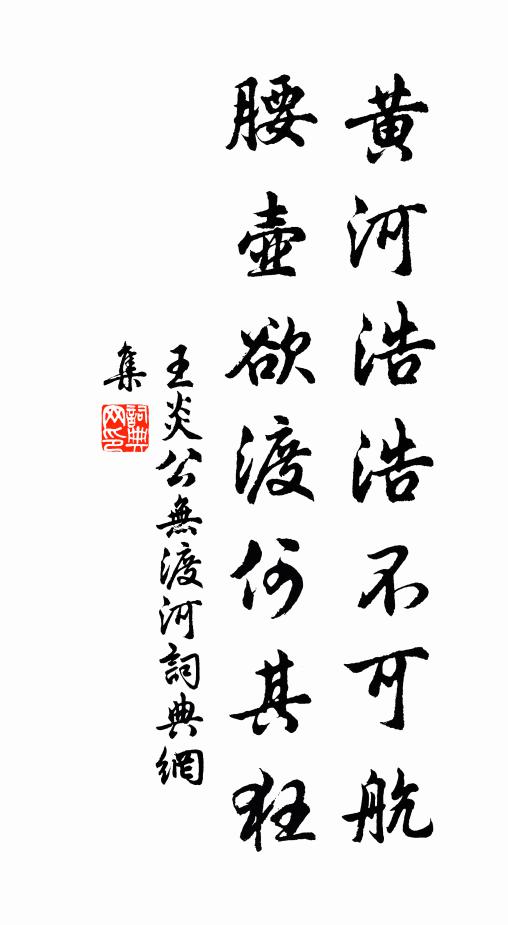 黃河浩浩不可航
腰壺欲渡何其狂
王炎公無渡河詞典網
集
詞典网印